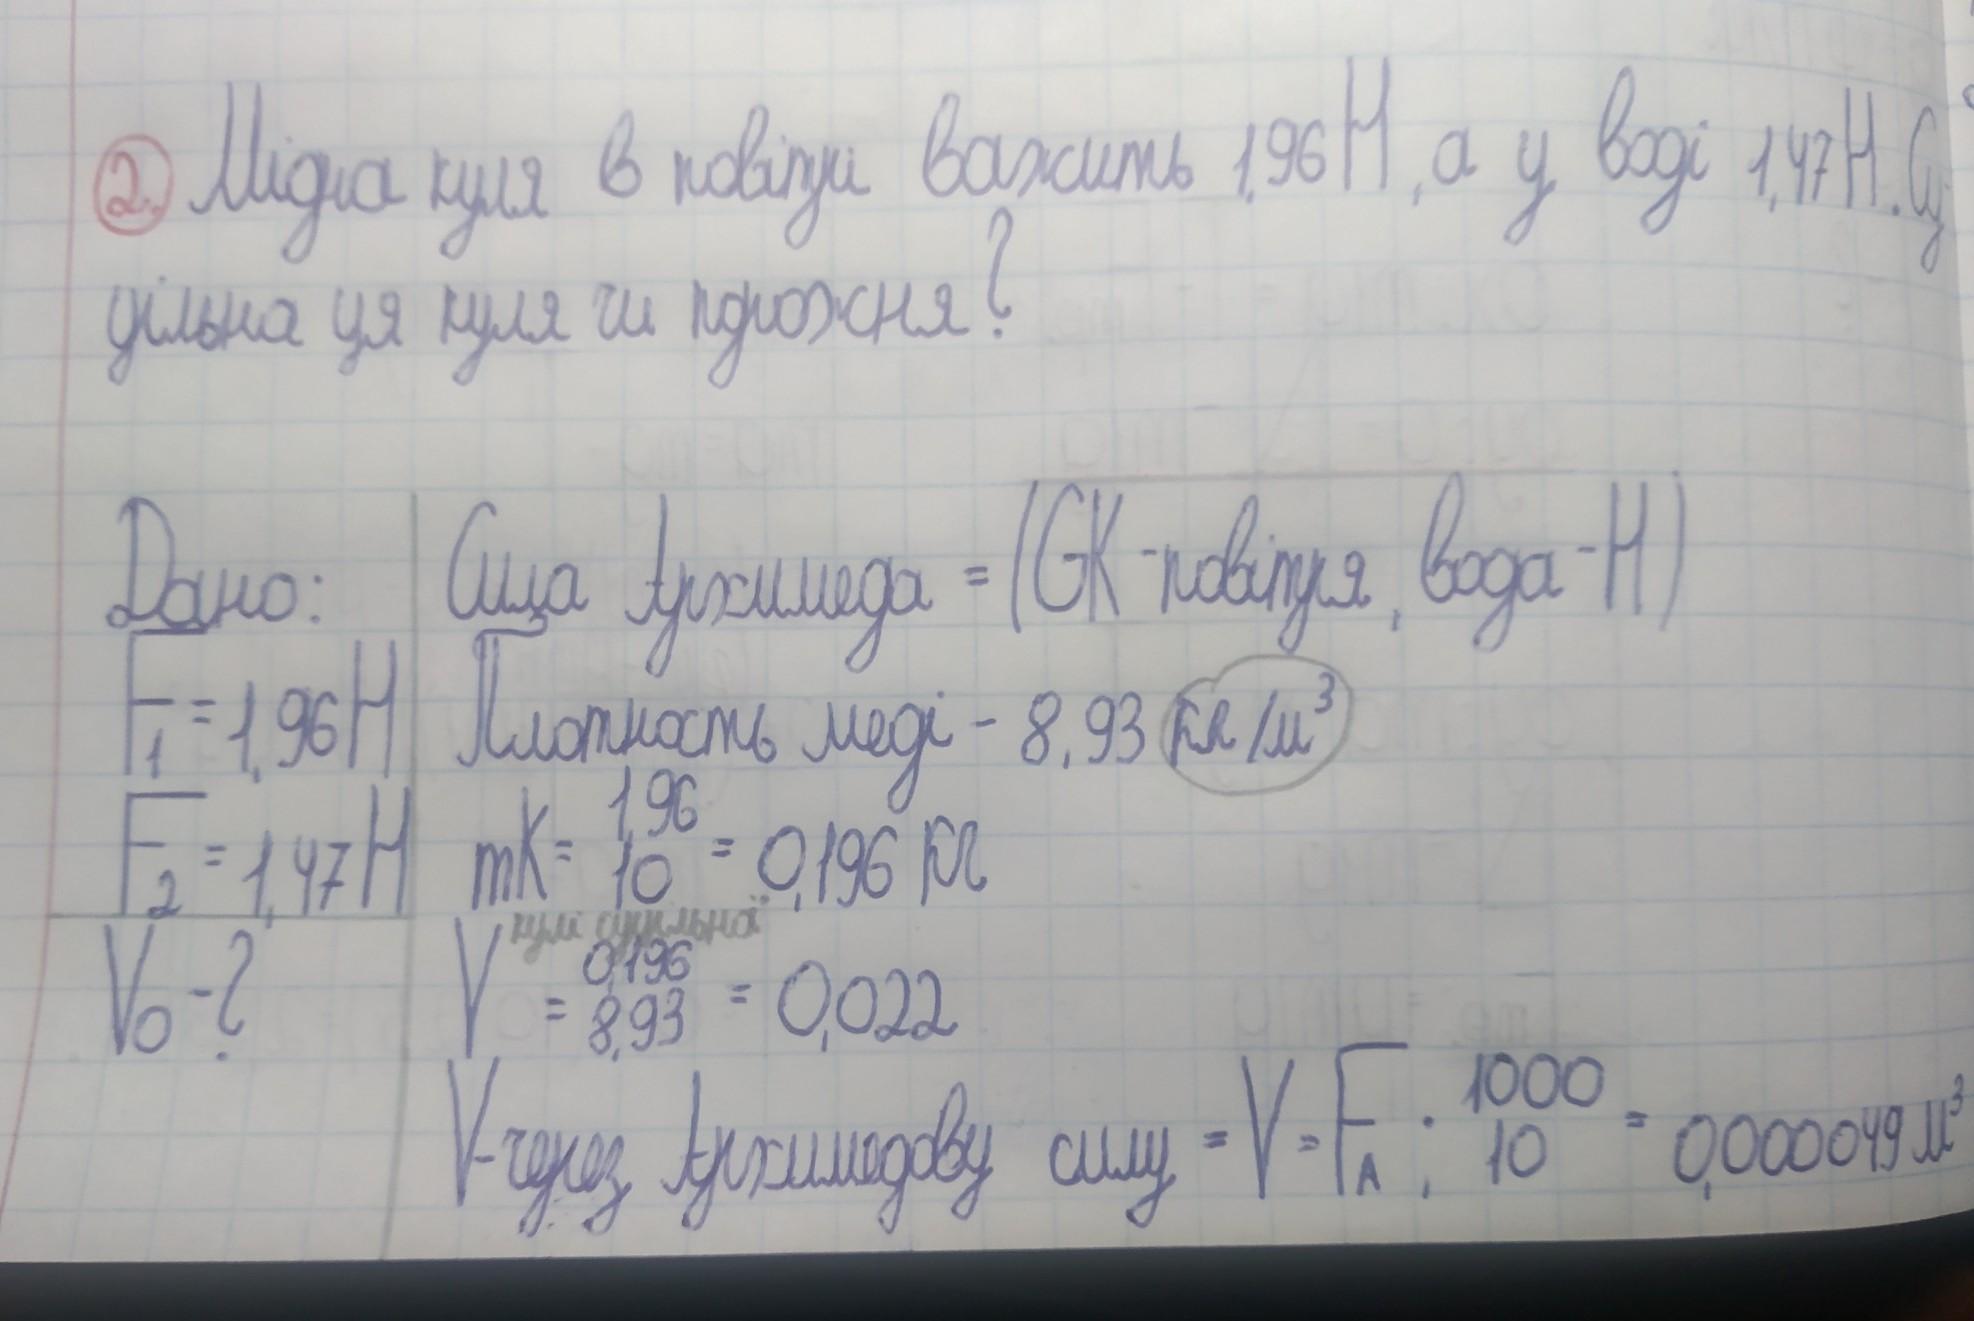 2. Мідна куля в повітрі важить 1,96Н, а у воді 1,47Н. Су
цільна ця куля чи порожня?
Дано:
F1=1,96Н
F2=1,47Н
V0-?
Сила Архимеда = (GK-повітря, вода-Н)
Плотность меді - 8,93 кг/м³
mK= 1,96/10 = 0,196 кг
V кулі суцільної = 0,196/8,93 = 0,022
V-через Архимедову силу = V = FA : 1000/10 = 0,000049м³